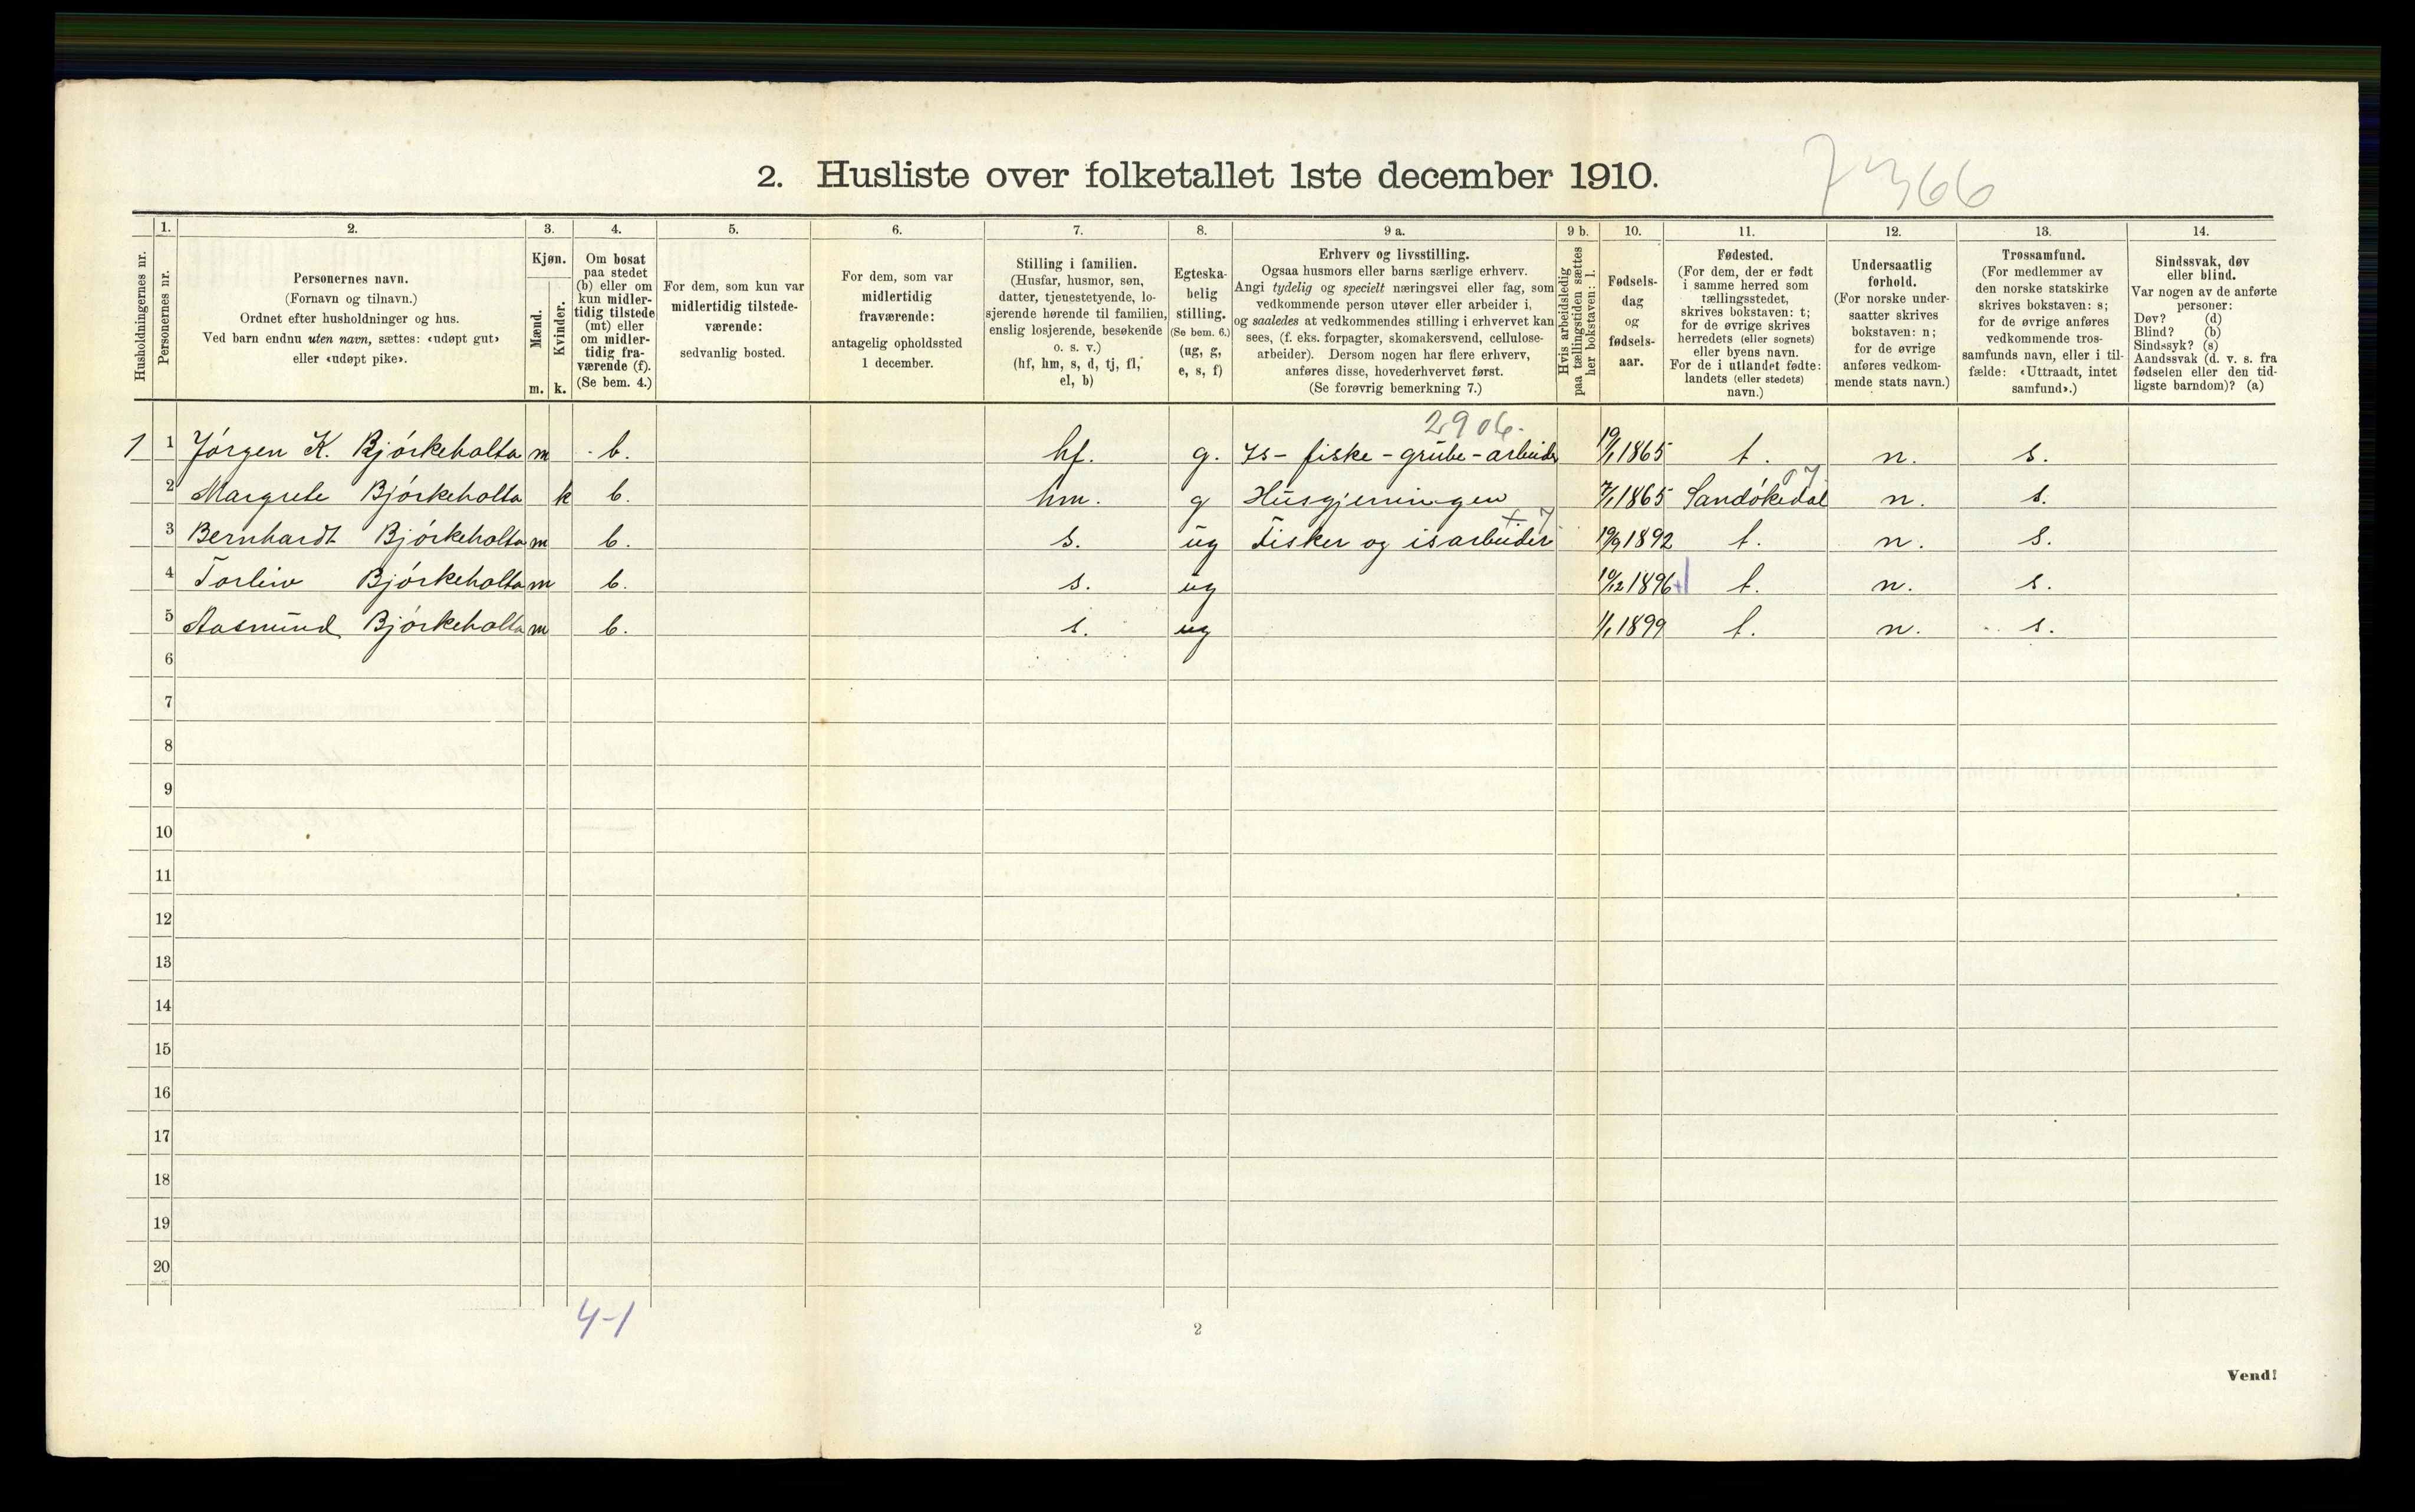 2. Husliste over folketallet 1ste december 1910.
7366
Husholdningernes nr.
1.
Personernes nr.
2.
Personernes navn.
(Fornavn og tilnavn.)
Ordnet efter husholdninger og hus.
Ved barn endnu uten navn, sættes: «udøpt gut»
eller «udøpt pike».
3.
Kjøn.
Mænd.
m.
Kvinder.
k.
4.
Om bosat
paa stedet
(b) eller om
kun midler-
tidig tilstede
(mt) eller
om midler-
tidig fra-
værende (f).
(Se bem. 4.)
5.
For dem, som kun var
midlertidig tilstede-
værende:
sedvanlig bosted.
6.
For dem, som var
midlertidig
fraværende:
antagelig opholdssted
1 december.
7.
Stilling i familien.
(Husfar, husmor, søn,
datter, tjenestetyende, lo-
sjerende hørende til familien,
enslig losjerende, besøkende
o. s. v.)
(hf, hm, s, d, tj, fl,
el, b)
8.
Egteska-
belig
stilling.
(Se bem. 6.)
(ug, g,
e, s, f)
9 a.
Erhverv og livsstilling.
Ogsaa husmors eller barns særlige erhverv.
Angi tydelig og specielt næringsvei eller fag, som
vedkommende person utøver eller arbeider i,
og saaledes at vedkommendes stilling i erhvervet kan
sees, (f. eks. forpagter, skomakersvend, cellulose-
arbeider). Dersom nogen har flere erhverv,
anføres disse, hovederhvervet først.
(Se forøvrig bemerkning 7.)
9 b.
Hvis arbeidsledig
paa tællingstiden sættes
her bokstaven: l.
10.
Fødsels-
dag
og
fødsels-
aar.
11.
Fødested.
(For dem, der er født
i samme herred som
tællingsstedet,
skrives bokstaven: t;
for de øvrige skrives
herredets (eller sognets)
eller byens navn.
For de i utlandet fødte:
landets (eller stedets)
navn.)
12.
Undersaatlig
forhold.
(For norske under-
saatter skrives
bokstaven: n;
for de øvrige
anføres vedkom-
mende stats navn.)
13.
Trossamfund.
(For medlemmer av
den norske statskirke
skrives bokstaven: s;
for de øvrige anføres
vedkommende tros-
samfunds navn, eller i til-
fælde: «Uttraadt, intet
samfund».)
14.
Sindssvak, døv
eller blind.
Var nogen av de anførte
personer:
Døv? (d)
Blind? (b)
Sindssyk? (s)
Aandssvak (d. v. s. fra
fødselen eller den tid-
ligste barndom)? (a)
2906.
1 1 Jörgen K. Björkeholta m b. hf. g. Is- fiske - grube - arbeider 19/1 1865 t. n. s.
2 Margrete Björkeholta k b. hm. g Husgjerningen 7/1 1865 Sandökedal 07 n. s.
3 Bernhardt Björkeholta m b. s. ug Fisker og isarbeider + 7 19/9 1892 t. n. s.
4 Torleiv Björkeholta m b. s. ug 10/12 1896 t. n. s.
5 Aasmund Björkeholta m b. s. ug 1/1 1899 t. n. s.
6
7
8
9
10
11
12
13
14
15
16
17
18
19
20
4-1
2
Vend!